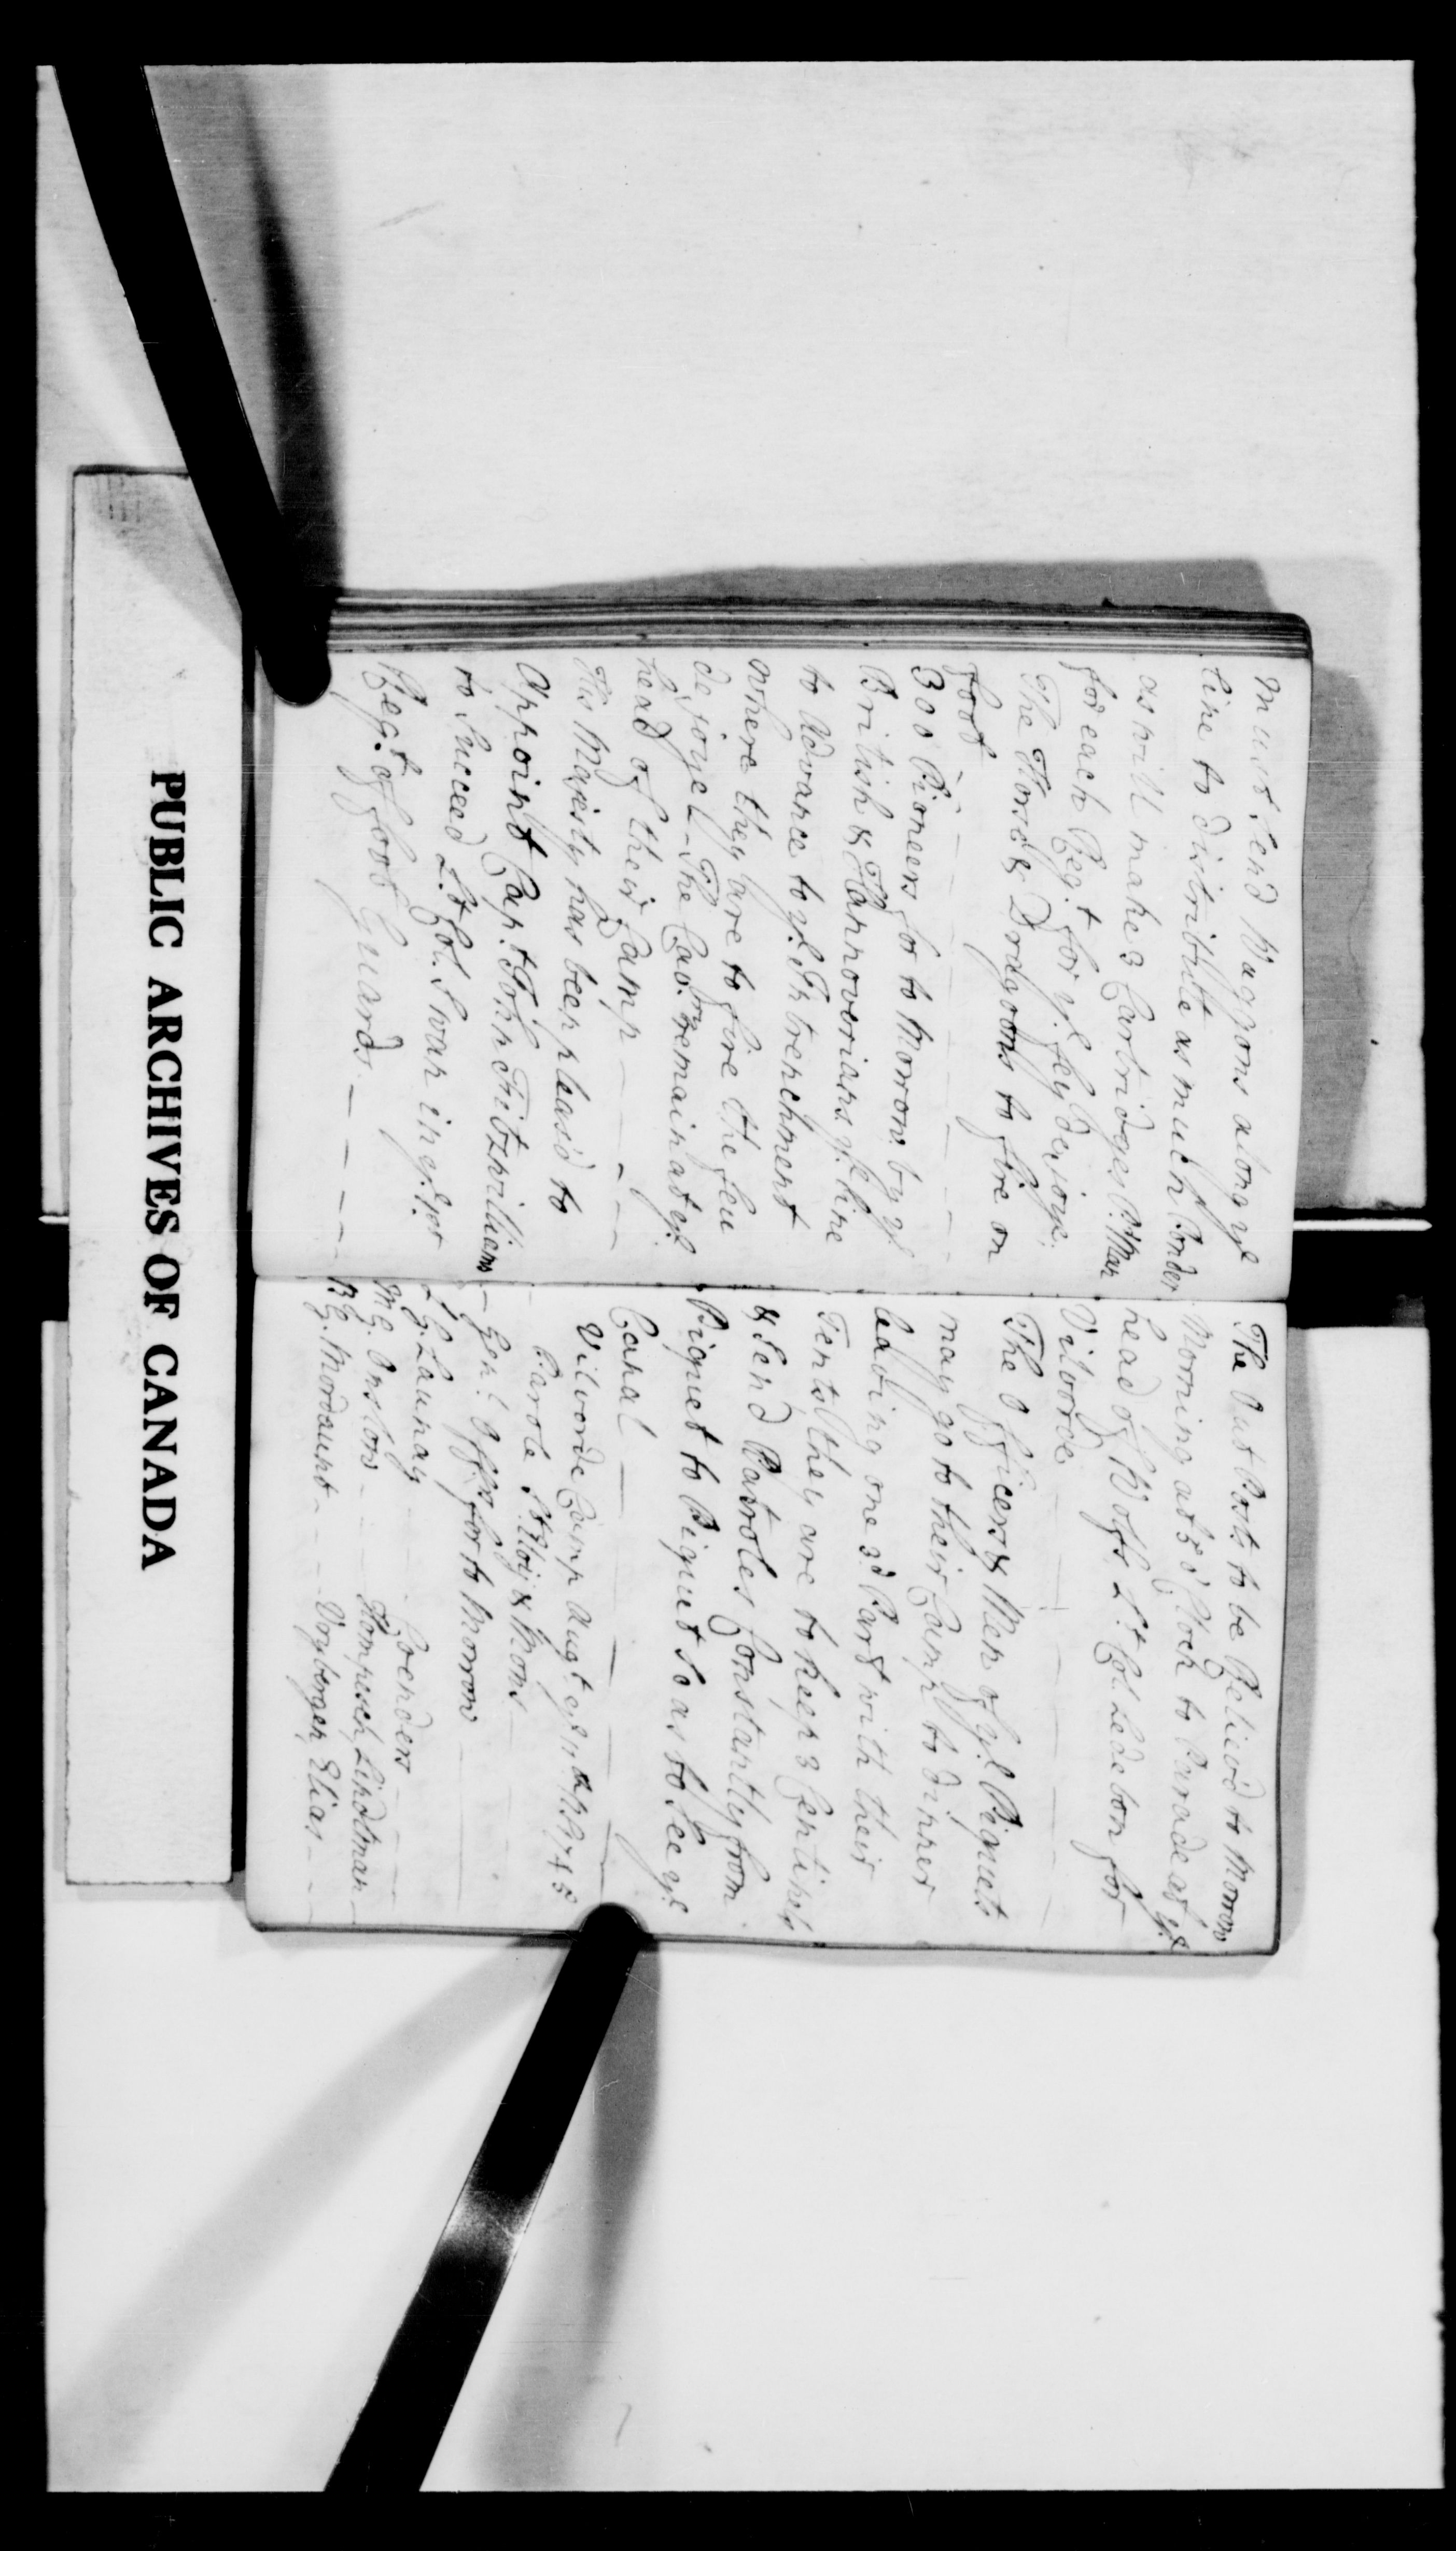 must Send Waggons along ye
line to distribute as much Powder
as will make 3 Cartridges P. Man
for each Reg.t for ye feu de joye.
The Horse & Dragoons to fire on
foot
300 Pioneers for to Morrow by ye
British & Hannoverians ye line
to Advance to ye Intrenchment
where they are to fire the feu
de joye - The Cav.ry remain at ye
head of their Camp - - - -
His Majesty has been pleas'd to
Appoint Cap.t John Fitzwilliams
to Succeed L.t Col. Swan in ye 1st
Reg.t of foot Guards. - - - -
The Out Posts to be Reliev'd to Morrow
Morning at 5 o' Clock to Parade at ye
head of Wolfs L.t Col. Ledebon for
Vilvorde
The Officers & Men of ye Piquets
may go to their Camp to dinner
leaving one 3d Part with their
Tents they are to keep 3 Centinls
& Send Patroles Constantly from
Piquet to Piquet so as to See ye
Canal
Vilvorde Camp Augt ye 1745
Parole St. & Mons
Genl. Offrs for to Morrow
L.G. Launay - Coenders
M.G. Onslow - Hompesch, Lindtman
B.G. Mordaunt - Elias
PUBLIC ARCHIVES OF CANADA